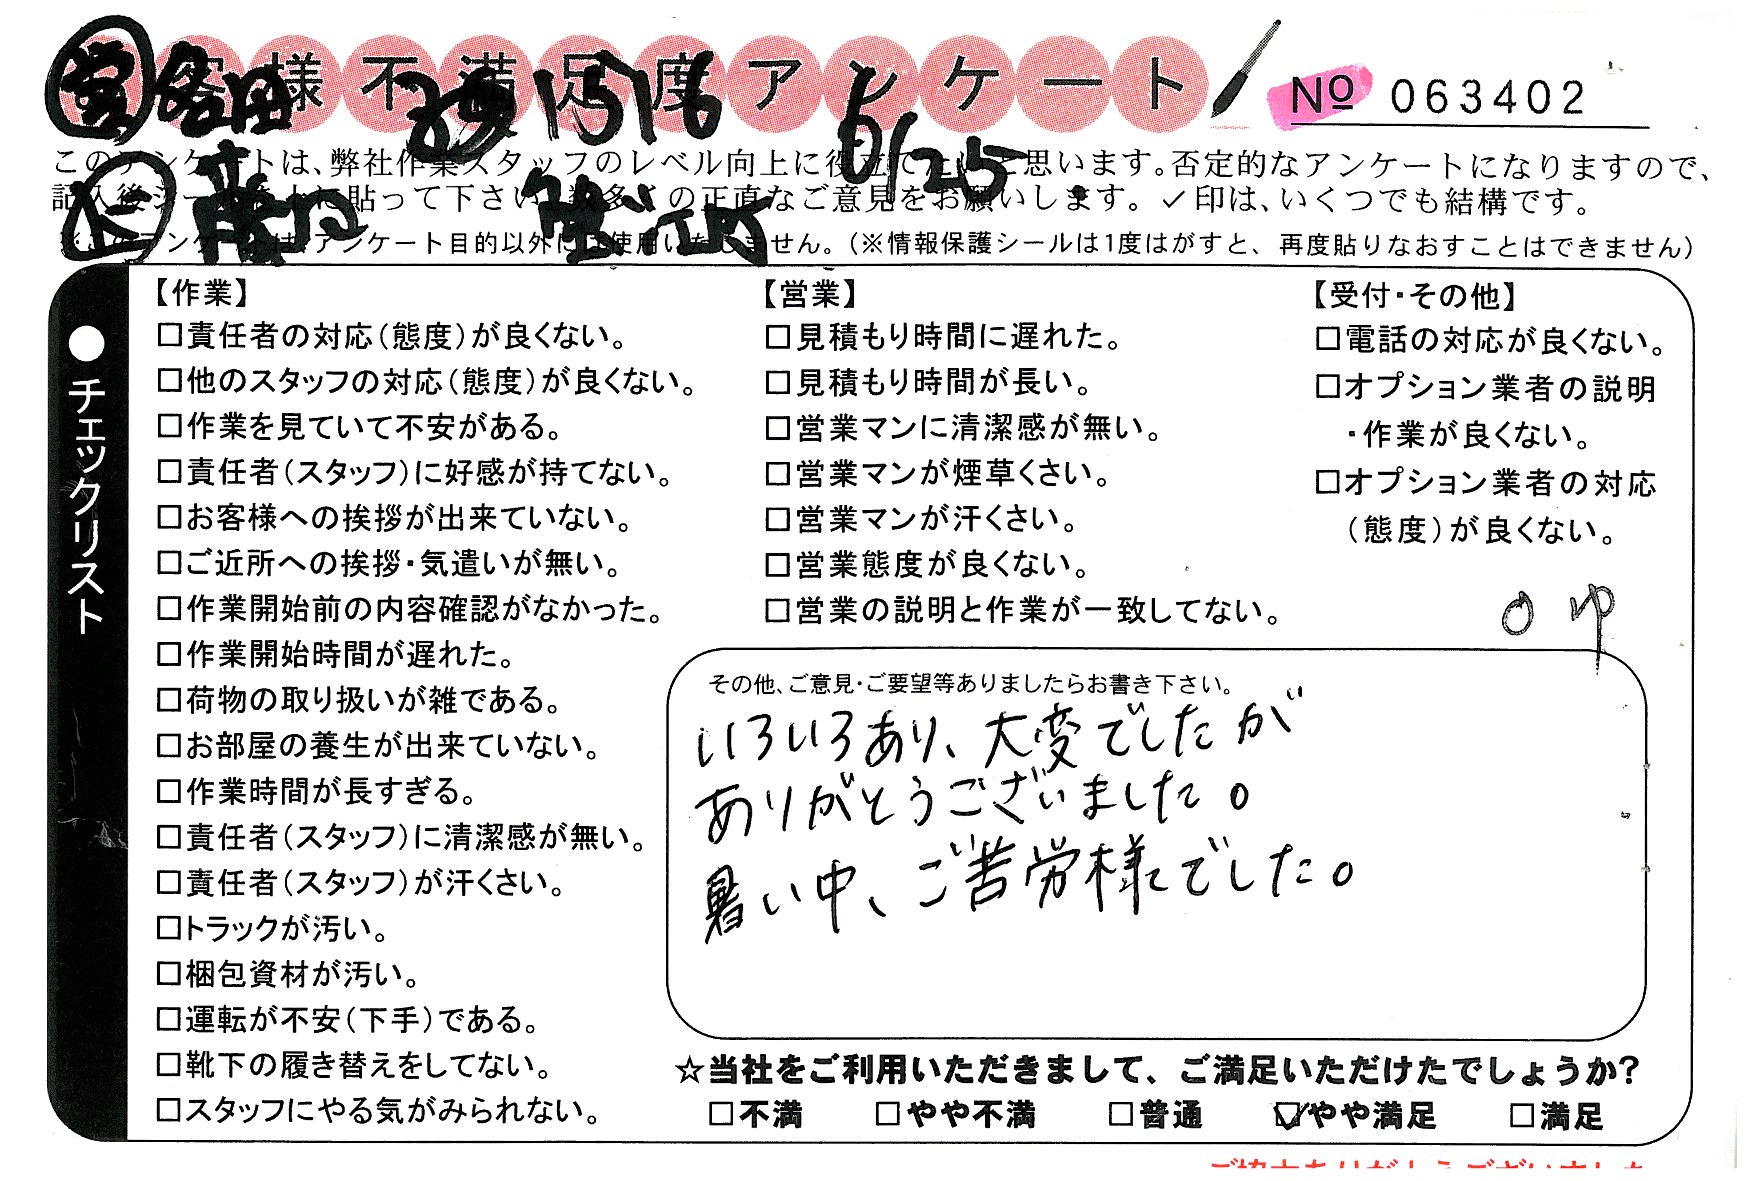 お客様不満足度アンケート
№ 063402
6/25
このアンケートは、弊社作業スタッフのレベル向上に役立てたいと思います。否定的なアンケートになりますので、
記入後シールを上に貼って下さい。数多くの正直なご意見をお願いします。✓印は、いくつでも結構です。
※このアンケートは、アンケート目的以外には使用いたしません。（※情報保護シールは1度はがすと、再度貼りなおすことはできません）
●チェックリスト
【作業】
□責任者の対応（態度）が良くない。
□他のスタッフの対応（態度）が良くない。
□作業を見ていて不安がある。
□責任者（スタッフ）に好感が持てない。
□お客様への挨拶が出来ていない。
□ご近所への挨拶・気遣いが無い。
□作業開始前の内容確認がなかった。
□作業開始時間が遅れた。
□荷物の取り扱いが雑である。
□お部屋の養生が出来ていない。
□作業時間が長すぎる。
□責任者（スタッフ）に清潔感が無い。
□責任者（スタッフ）が汗くさい。
□トラックが汚い。
□梱包資材が汚い。
□運転が不安（下手）である。
□靴下の履き替えをしてない。
□スタッフにやる気がみられない。
【営業】
□見積もり時間に遅れた。
□見積もり時間が長い。
□営業マンに清潔感が無い。
□営業マンが煙草くさい。
□営業マンが汗くさい。
□営業態度が良くない。
□営業の説明と作業が一致してない。
【受付・その他】
□電話の対応が良くない。
□オプション業者の説明
・作業が良くない。
□オプション業者の対応
（態度）が良くない。
その他、ご意見・ご要望等ありましたらお書き下さい。
いろいろあり、大変でしたが
ありがとうございました。
暑い中、ご苦労様でした。
☆当社をご利用いただきまして、ご満足いただけたでしょうか?
□不満 □やや不満 □普通 ☑やや満足 □満足
ご協力ありがとうございました